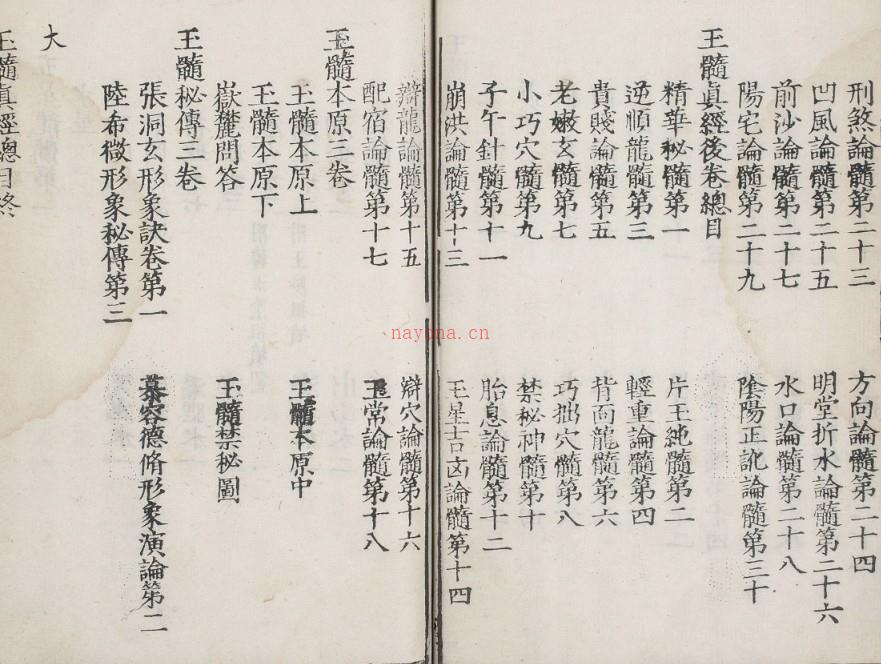 刑煞論髓第二十三　方向論髓第二十四
凹風論髓第二十五　明堂折水論髓第二十六
前沙論髓第二十七　水口論髓第二十八
陽宅論髓第二十九　陰陽正訛論髓第三十
玉髓眞經後卷總目
精華秘髓第一　片玉純髓第二
逆順龍髓第三　輕重論髓第四
貴賤論髓第五　背面龍髓第六
老嫩玄髓第七　巧拙穴髓第八
小巧穴髓第九　禁秘神髓第十
子午針髓第十一　胎息論髓第十二
崩洪論髓第十三　五星吉凶論髓第十四
辯龍論髓第十五　辯穴論髓第十六
配宿論髓第十七　玉常論髓第十八
玉髓本原三卷
玉髓本原上　玉髓本原中
玉髓本原下
嶽麓問答　玉髓禁秘圖
玉髓秘傳三卷
張洞玄形象訣卷第一　慕容德脩形象演論第二
陸希微形象秘傳第三
大
玉髓眞經總目終
nayona.cn